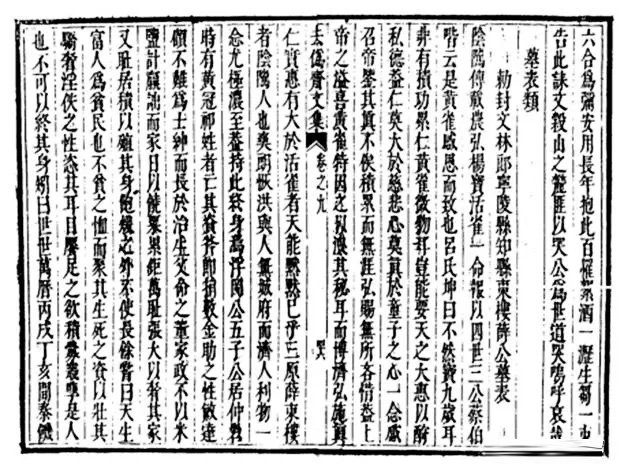 六合為彌安用長年抱此百罹絮酒一瀝生芻一束
告此誄文殺山之麓匪以哭公為世道哭嗚呼哀哉
墓表類
勅封文林郎寧陵縣知縣東樓薛公墓表
陰隲傳載農弘楊寶活雀一命報以四世三公蔡伯
喈云是黃雀感恩而致也呂氏坤曰不然寶九歲耳
非有積功累仁黃雀微物耳豈能要天之大惠以酧
私德蓋仁莫大於慈悲心莫真於童子之心一念感
召帝鑒其真不俟積累而無涯弘賜無所吝惜蓋上
帝之溢喜黃雀特因之以洩其秘耳而博濟弘施真
去偽齋文集 卷之九
仁實惠有大於活雀者天能默默已乎三原薛東樓
者陰隲人也爽朗恢洪與人無城府而濟人利物一
念尤極濃至蓋持此終身焉浮岡公五子公居仲甞
時有黃冠祁姓者亡其資斧即捐數金助之性敏達
顧不難為士紳而長於治生父命之董家政不以米
鹽計贏詘而家日以饒業果鉅萬耻張大以奢其家
又耻居積以其身飽煖之外不使長餘甞曰天生
富人為貧民也不貧之恤而聚其生死之資以壯其
驕奢淫佚之性恣其耳目足之欲積歲叢孽是人
也不可以終其身矧曰世世萬曆丙戌丁亥間秦饑